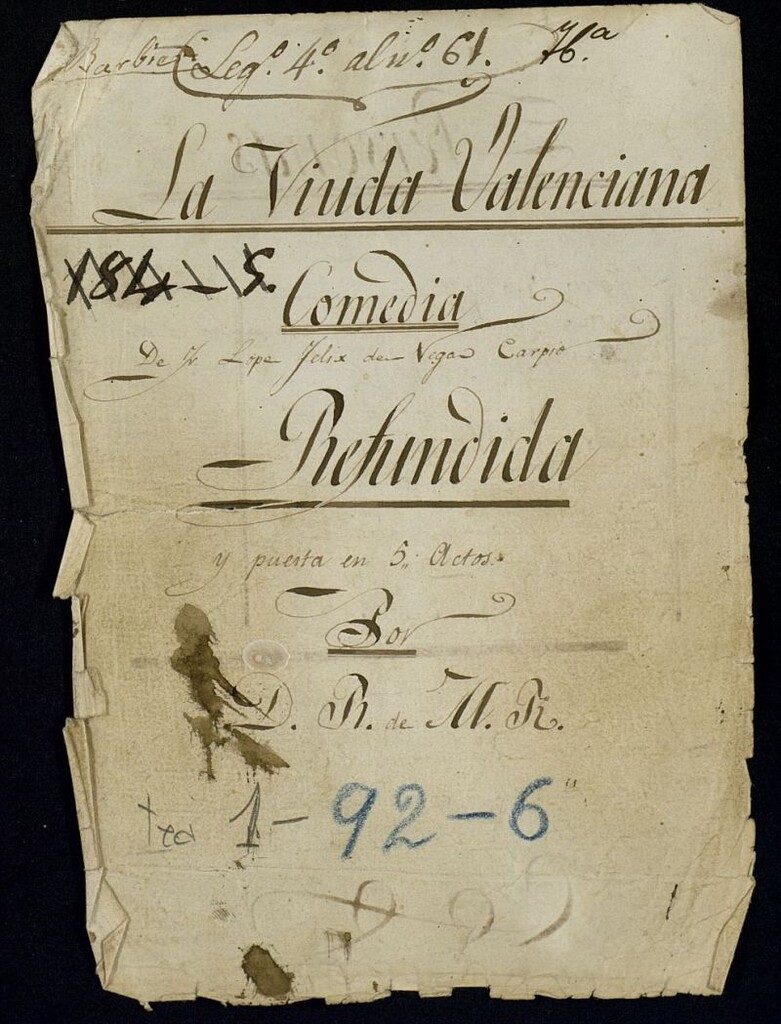 Barbieri Leg.º 4.º al n.º 61. 76.ª
La Viuda Valenciana
184-5.
Comedia
De Fr. Lope Felix de Vega Carpio
Refundida
y puesta en 5,, Actos.
Por
D. R. de M. R.
Tea 1-92-6